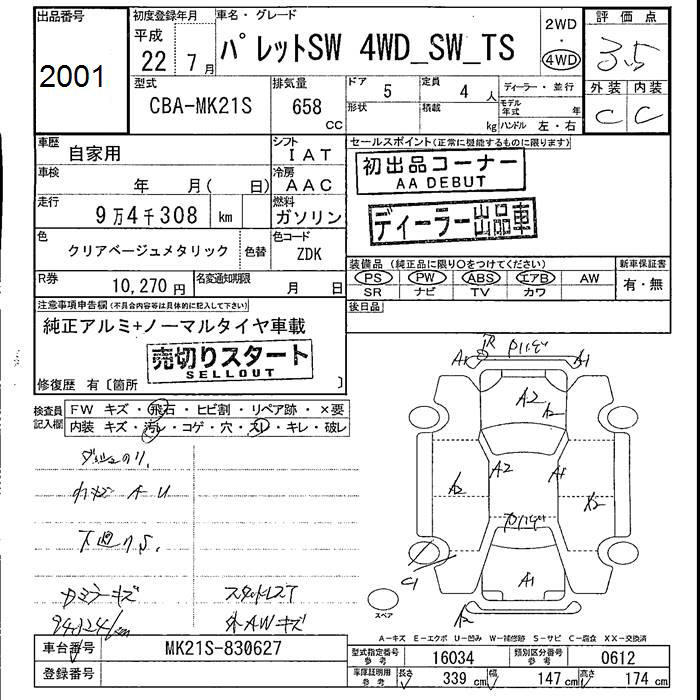 出品番号 初度登録年月 車名・グレード 2WD・4WD 評価点
2001 平成22年7月 パレットSW 4WD_SW_TS 3.5
型式 排気量 ドア 5 定員 4人 ディーラー・並行 外装 内装
CBA-MK21S 658cc 形状 積載 kg モデル年式 年 ハンドル 左・右 C C
車歴 自家用 シフト IAT セールスポイント(正常に機能するものに限ります)
車検 年 月( 日) 冷房 AAC 初出品コーナー
AA DEBUT
走行 9万4千308 km 燃料 ガソリン ディーラー出品車
色 クリアベージュメタリック 色替 色コード ZDK
装備品(純正品に限り○をつけてください) 新車保証書
PS PW ABS エアB AW 有・無
SR ナビ TV カワ
R券 10,270円 名変通知期限 月 日
後日品
注意事項申告欄(不具合内容等は具体的に記入して下さい)
純正アルミ+ノーマルタイヤ車載
売切りスタート
SELLOUT
修復歴 有〔箇所 〕
検査員記入欄 FW キズ・飛石・ヒビ割・リペア跡・×要
内装 キズ・汚レ・コゲ・穴・スレ・キレ・破レ
A1 R A1
A2 A2
A2 A2 A1 A2
C1 A1
A2
カギミゾキズ
スタッドレス7
外AWキズ
スペア
A-キズ E-エクボ U-凹み W-補修跡 S-サビ C-腐食 XX-交換済
車台番号 MK21S-830627
登録番号
型式指定番号 参考 16034 類別区分番号 参考 0612
車庫証明用 参考 長さ 339cm 幅 147cm 高さ 174cm